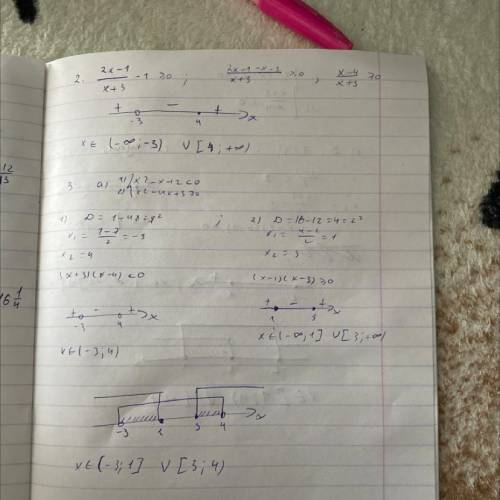 2. (2x-1)/(x+3) - 1 ≥0 ; (2x-1-x-3)/(x+3) ≥0 , (x-4)/(x+3) ≥0
+ - +
-3 4 x
x∈ (-∞;-3) ∪ [4; +∞)
3. a) 1) x²-x-12<0
2) x²-4x+3≥0
1) D = 1-48=7²
x₁ = (1-7)/2 = -3
x₂ = 4
(x+3)(x-4)<0
+ - +
-3 4 x
x∈(-3;4)
2) D=16-12=4=2²
x₁ = (4-2)/2 = 1
x₂ = 3
(x-1)(x-3)≥0
+ - +
1 3 x
x∈(-∞;1] ∪[3;+∞)
-3 1 3 4 x
x∈(-3;1] ∪ [3;4)
12
13
16 1/4